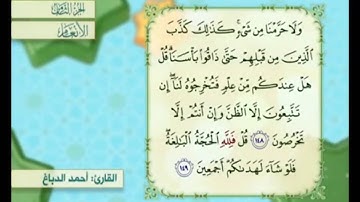 الجزء الثامن
الأنعام
وَلَا حَرَّمْنَا مِن شَىْءٍ ۚ كَذَٰلِكَ كَذَّبَ
ٱلَّذِينَ مِن قَبْلِهِمْ حَتَّىٰ ذَاقُوا۟ بَأْسَنَا ۗ قُلْ
هَلْ عِندَكُم مِّنْ عِلْمٍ فَتُخْرِجُوهُ لَنَآ ۖ إِن
تَتَّبِعُونَ إِلَّا ٱلظَّنَّ وَإِنْ أَنتُمْ إِلَّا
تَخْرُصُونَ ١٤٨ قُلْ فَلِلَّهِ ٱلْحُجَّةُ ٱلْبَٰلِغَةُ ۖ
فَلَوْ شَآءَ لَهَدَىٰكُمْ أَجْمَعِينَ ١٤٩
القارئ: أحمد الدباغ